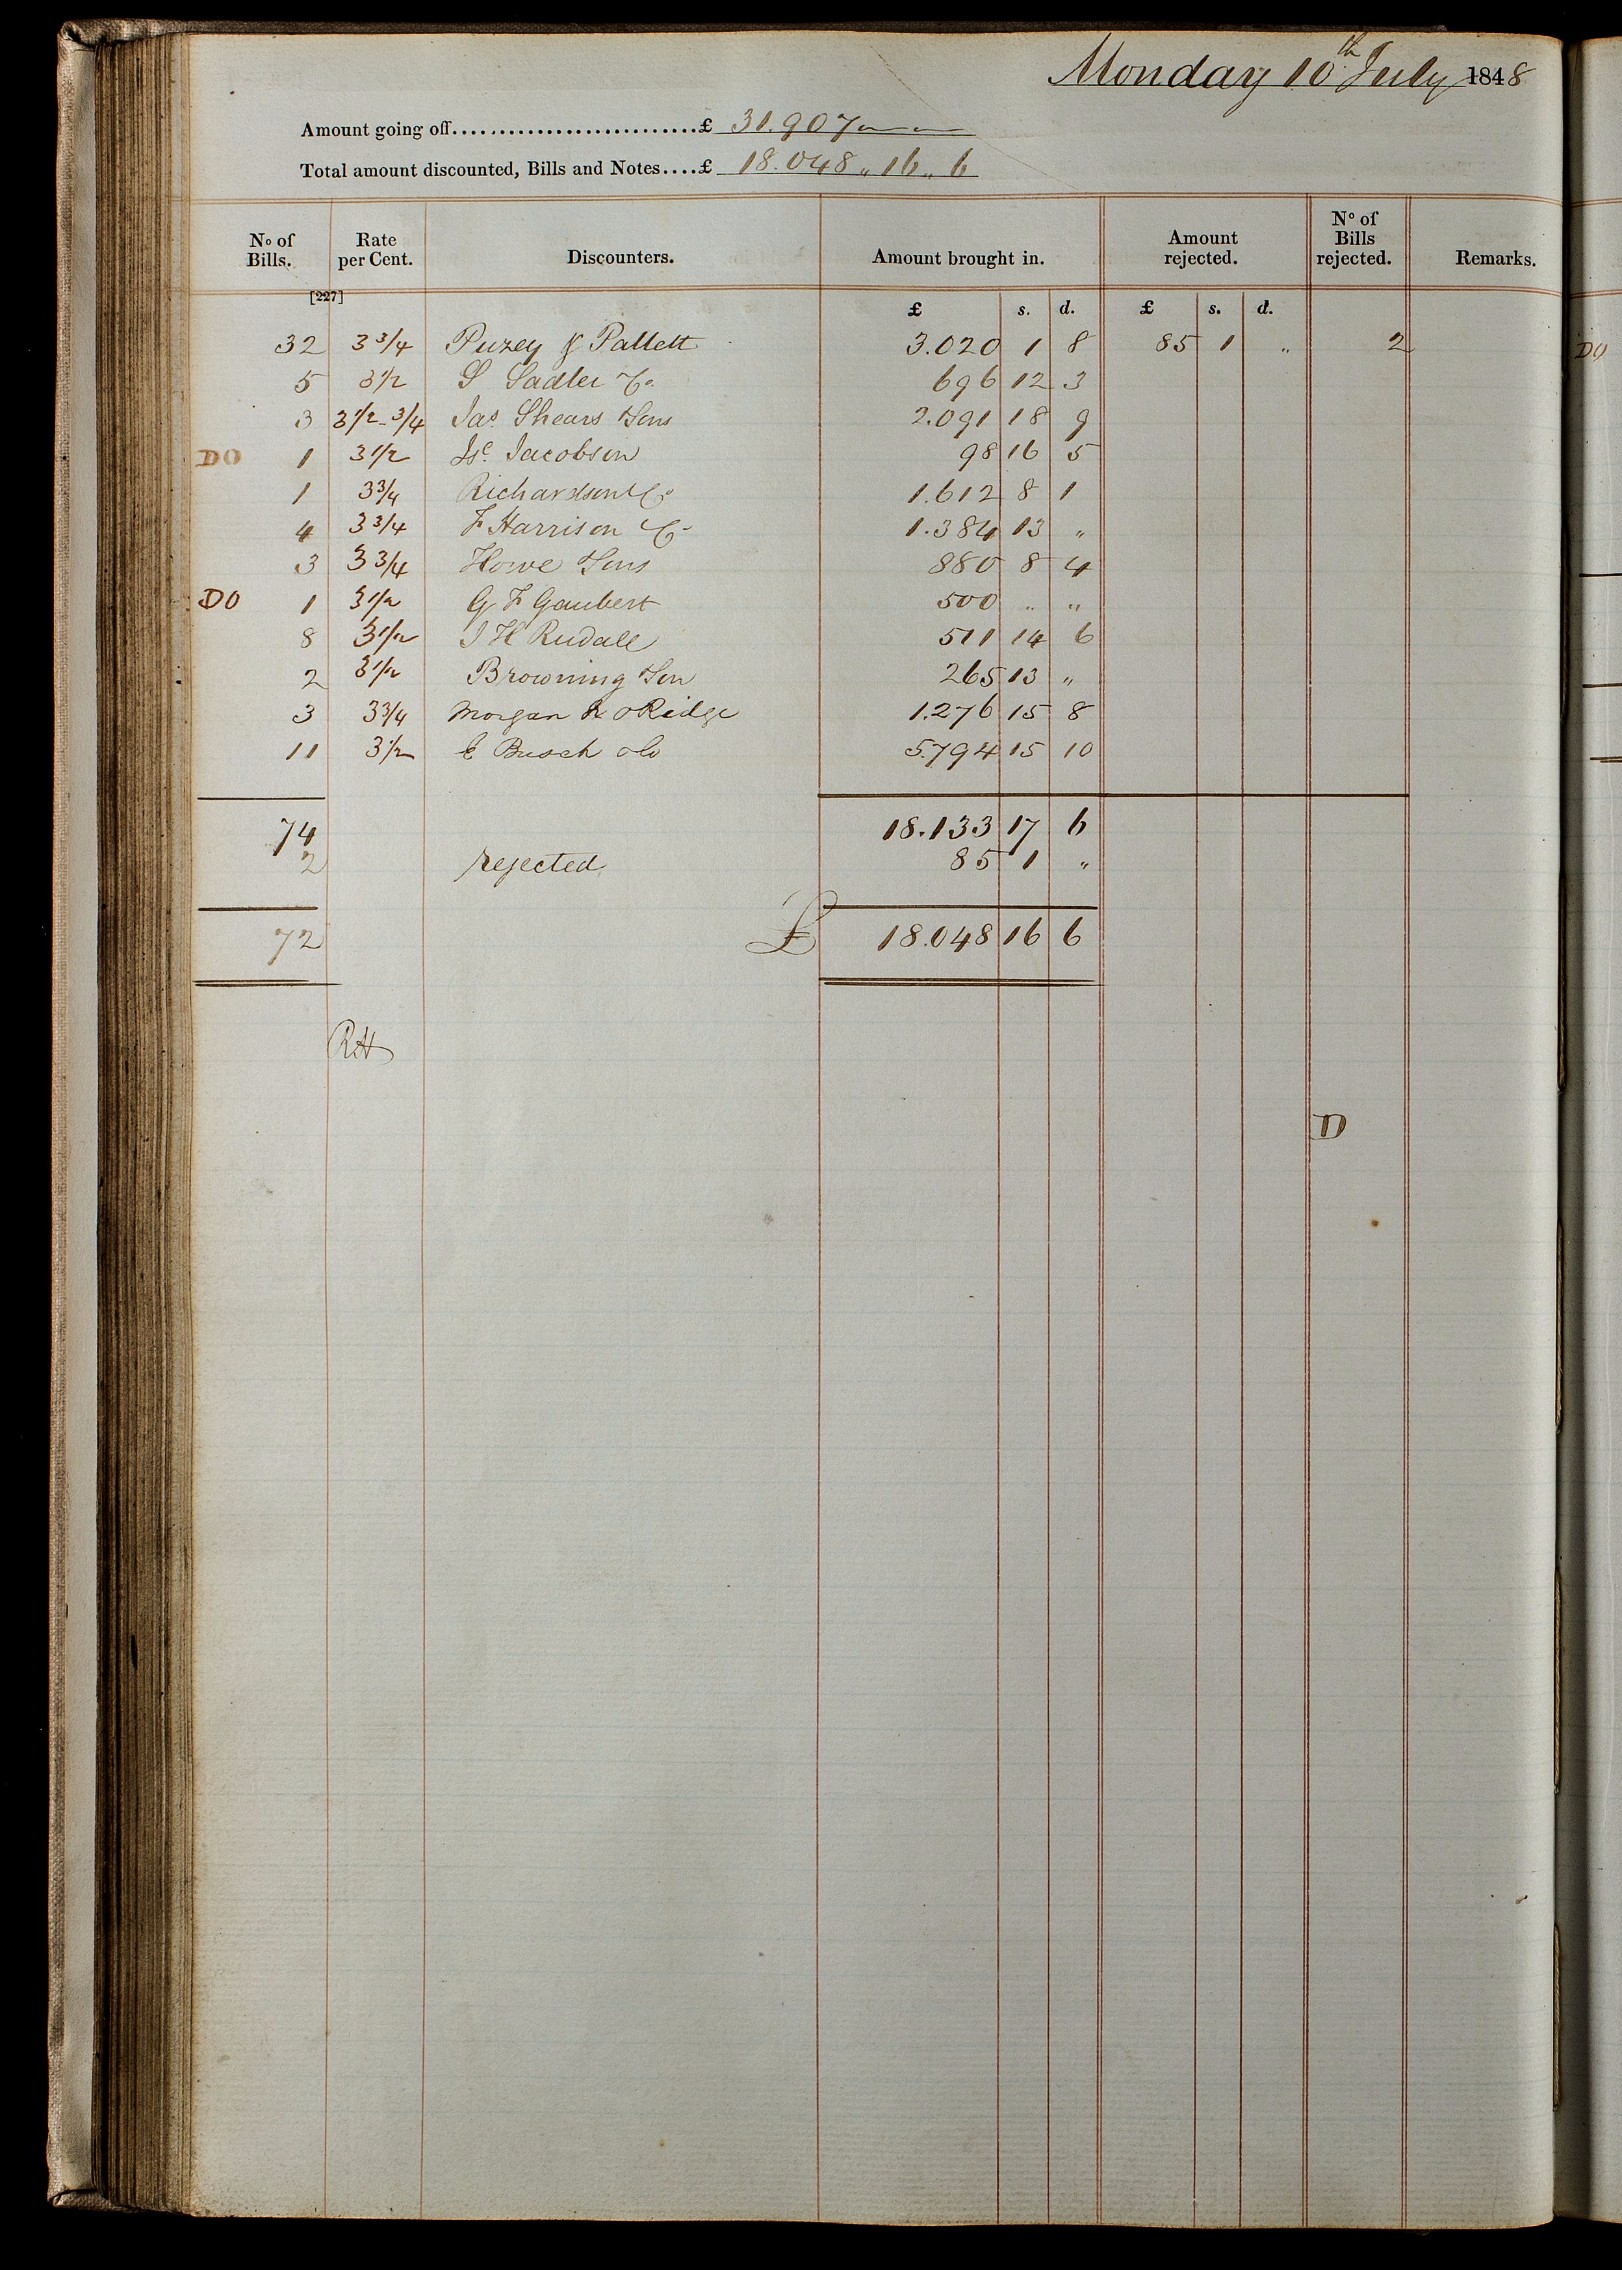 Monday 10th July 1848
Amount going off...........................£ 31.907 " "
Total amount discounted, Bills and Notes....£ 18.048 " 16 " 6
No of Bills. Rate per Cent. Discounters. Amount brought in. Amount rejected. No of Bills rejected. Remarks.
[227]
£ s. d. £ s. d.
32 3 3/4 Puzey & Pallett 3.020 1 8 85 1 " 2
5 3 1/2 S Sadler & Co 696 12 3
3 3 1/2 - 3/4 Jas Shears & Sons 2.091 18 9
DO 1 3 1/2 Isc Jacobson 98 16 5
1 3 3/4 Richardson & Co 1.612 8 1
4 3 3/4 F Harrison & Co 1.384 13 "
3 3 3/4 Howe & Sons 880 8 4
DO 1 3 1/2 G F Gaubert 500 " "
8 3 1/2 J H Rudall 511 14 6
2 3 1/2 Browning & Son 265 13 "
3 3 3/4 Morgan & Ridge 1.276 15 8
11 3 1/2 E Busch & Co 5.794 15 10
74 18.133 17 6
2 rejected 85 1 "
72 £ 18.048 16 6
RH
D
DO